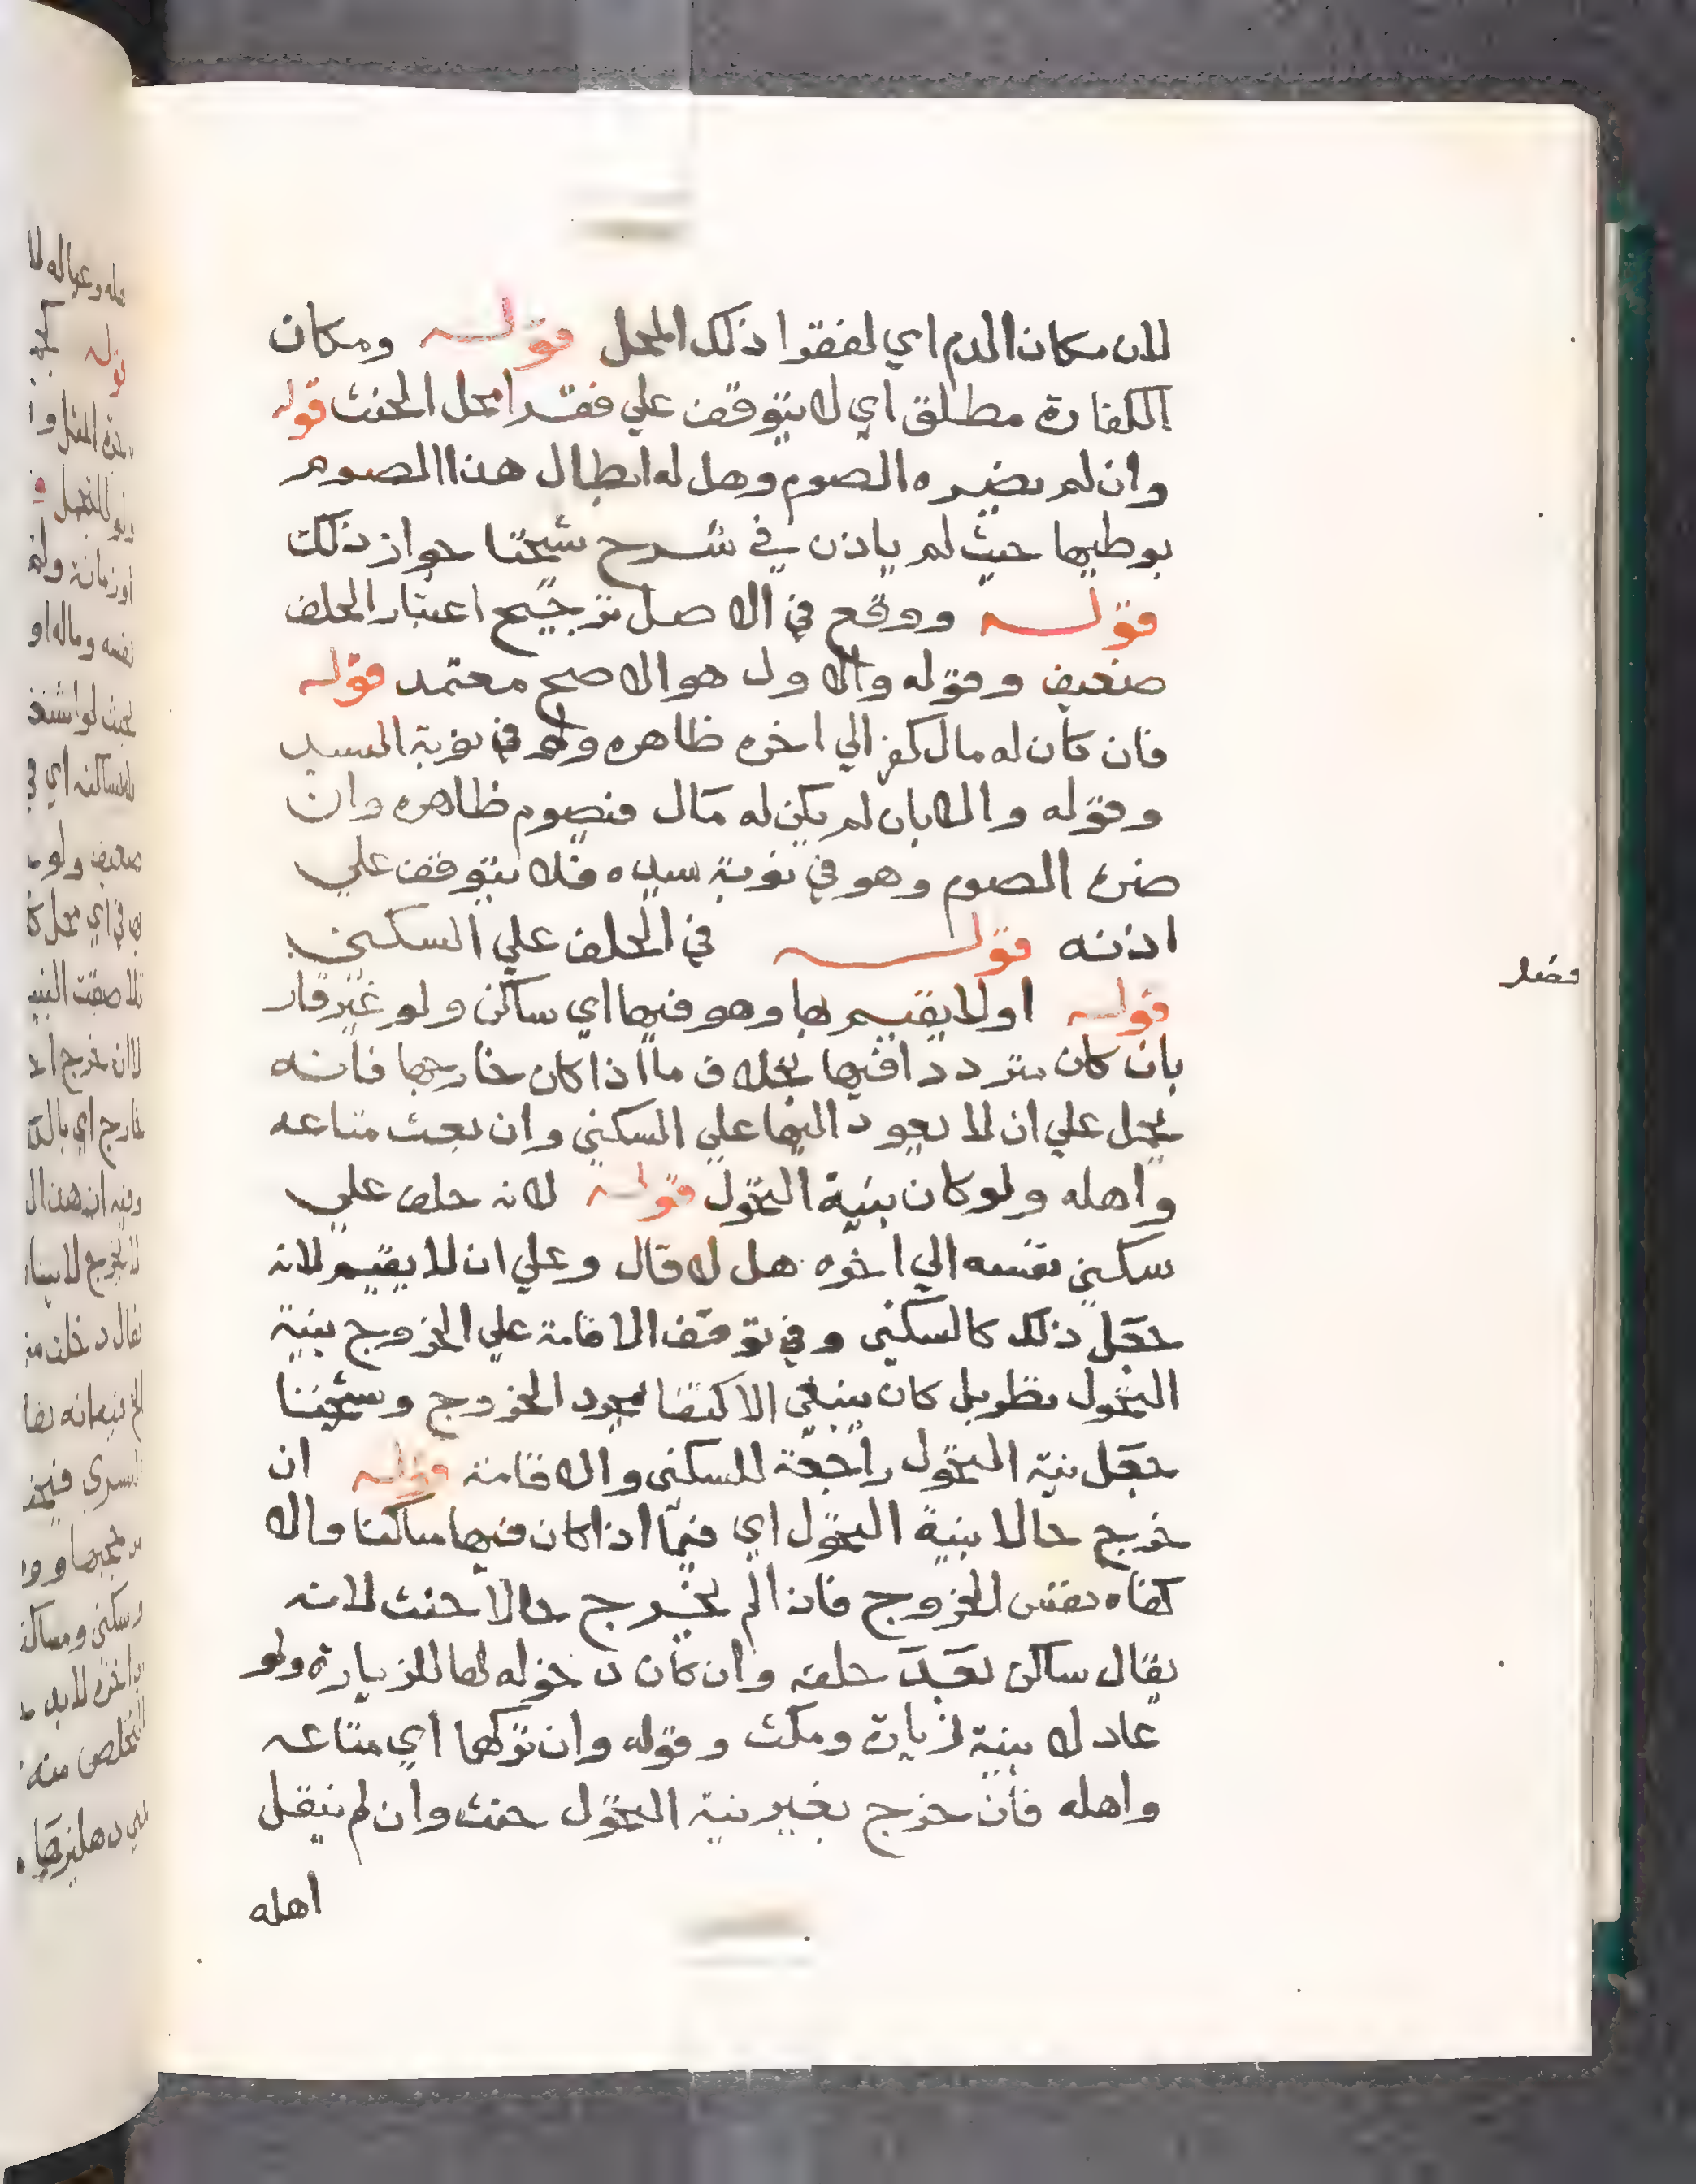 لان مكان الدم اي لفقرا ذلك المحل قوله ومكان
الكفارة مطلق اي لا يتوقف علي فقرا محل الحنث قوله
وان لم يضره الصوم وهل له ابطال هذا الصوم
بوطيها حيث لم ياذن في شرح شيخنا جواز ذلك
قوله ووقع في الاصل ترجيح اعتبار الحلف
ضعيف وقوله والاول هو الاصح معتمد قوله
فان كان له مال كفر الي اخره ظاهره ولو في نوبة السيد
وقوله والا بان لم يكن له مال فيصوم ظاهره وان
ضره الصوم وهو في نوبة سيده فلا يتوقف علي
اذنه قوله في الحلف علي السكني
فصل
قوله اولا يقيم بها وهو فيها اي ساكن ولو غير قار
بان كان مترددا فيها بخلاف ما اذا كان خارجها فانه
يحمل علي ان لا يعود اليها علي السكني وان بعث متاعه
واهله ولو كان بنية التحول قوله لانه حلف علي
سكني نفسه الي اخره هل لا قال وعلي ان لا يقيم لانه
جعل ذلك كالسكني وفي توقف الاقامة علي الخروج بنية
التحول نظر بل كان ينبغي الاكتفا بمجرد الخروج وشيخنا
جعل نية التحول راجعة للسكني والاقامة قوله ان
خرج حالا بنية التحول اي فيما اذا كان فيها ساكنا والا
كفاه نفس الخروج فاذا لم يخرج حالا حنث لانه
يقال ساكن بعد حلفه وان كان دخوله لها للزيارة ولو
عاد لا بنية زيارة ومكث وقوله وان تركها اي متاعه
واهله فان خرج بغير نية التحول حنث وان لم ينقل
اهله